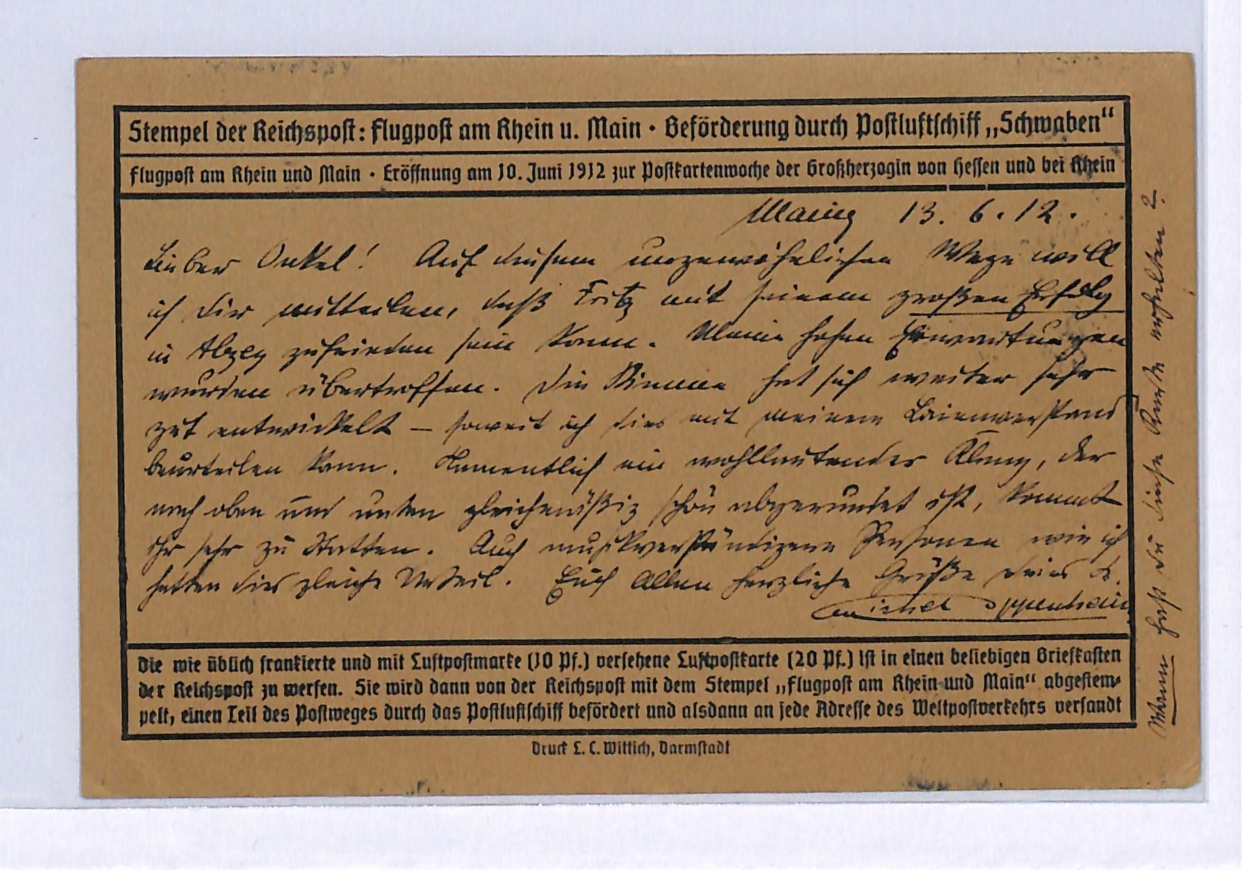 Stempel der Reichspost: Flugpost am Rhein u. Main · Beförderung durch Postluftschiff „Schwaben“
Flugpost am Rhein und Main · Eröffnung am 10. Juni 1912 zur Postkartenwoche der Großherzogin von Hessen und bei Rhein
Mainz 13. 6. 12.
Lieber Onkel! Auf diesem ungewöhnlichen Wege will
ich Dir mitteilen, daß Fritz mit seinem großen Erfolg
in Alzey zufrieden sein kann. Meine hohen Erwartungen
wurden übertroffen. Die Stimme hat sich weiter sehr
gut entwickelt – soweit ich dies mit meinem Laienverstand
beurteilen kann. Namentlich ein wohllautender Klang, der
nach oben und unten gleichmäßig schön abgerundet ist, kommt
ihr sehr zu Statten. Auch musikverständigere Personen wie ich
hatten dies gleiche Urteil. Euch Allen herzliche Grüße
Michel Oppenheim
Wann hast Du diese Karte erhalten?
Die wie üblich frankierte und mit Luftpostmarke (10 Pf.) versehene Luftpostkarte (20 Pf.) ist in einen beliebigen Briefkasten
der Reichspost zu werfen. Sie wird dann von der Reichspost mit dem Stempel „Flugpost am Rhein und Main“ abgestem-
pelt, einen Teil des Postweges durch das Postluftschiff befördert und alsdann an jede Adresse des Weltpostverkehrs versandt
Druck L. C. Wittich, Darmstadt